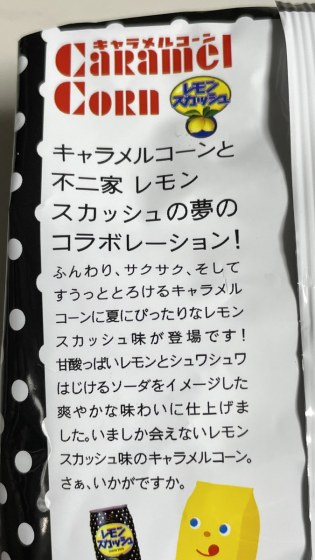 キャラメルコーン
CARAMEL
CORN
レモン
スカッシュ
キャラメルコーンと
不二家 レモン
スカッシュの夢の
コラボレーション!
ふんわり、サクサク、そして
すうっととろけるキャラメル
コーンに夏にぴったりなレモン
スカッシュ味が登場です!
甘酸っぱいレモンとシュワシュワ
はじけるソーダをイメージした
爽やかな味わいに仕上げま
した。いましか会えないレモン
スカッシュ味のキャラメルコーン。
さぁ、いかがですか。
レモン
スカッシュ